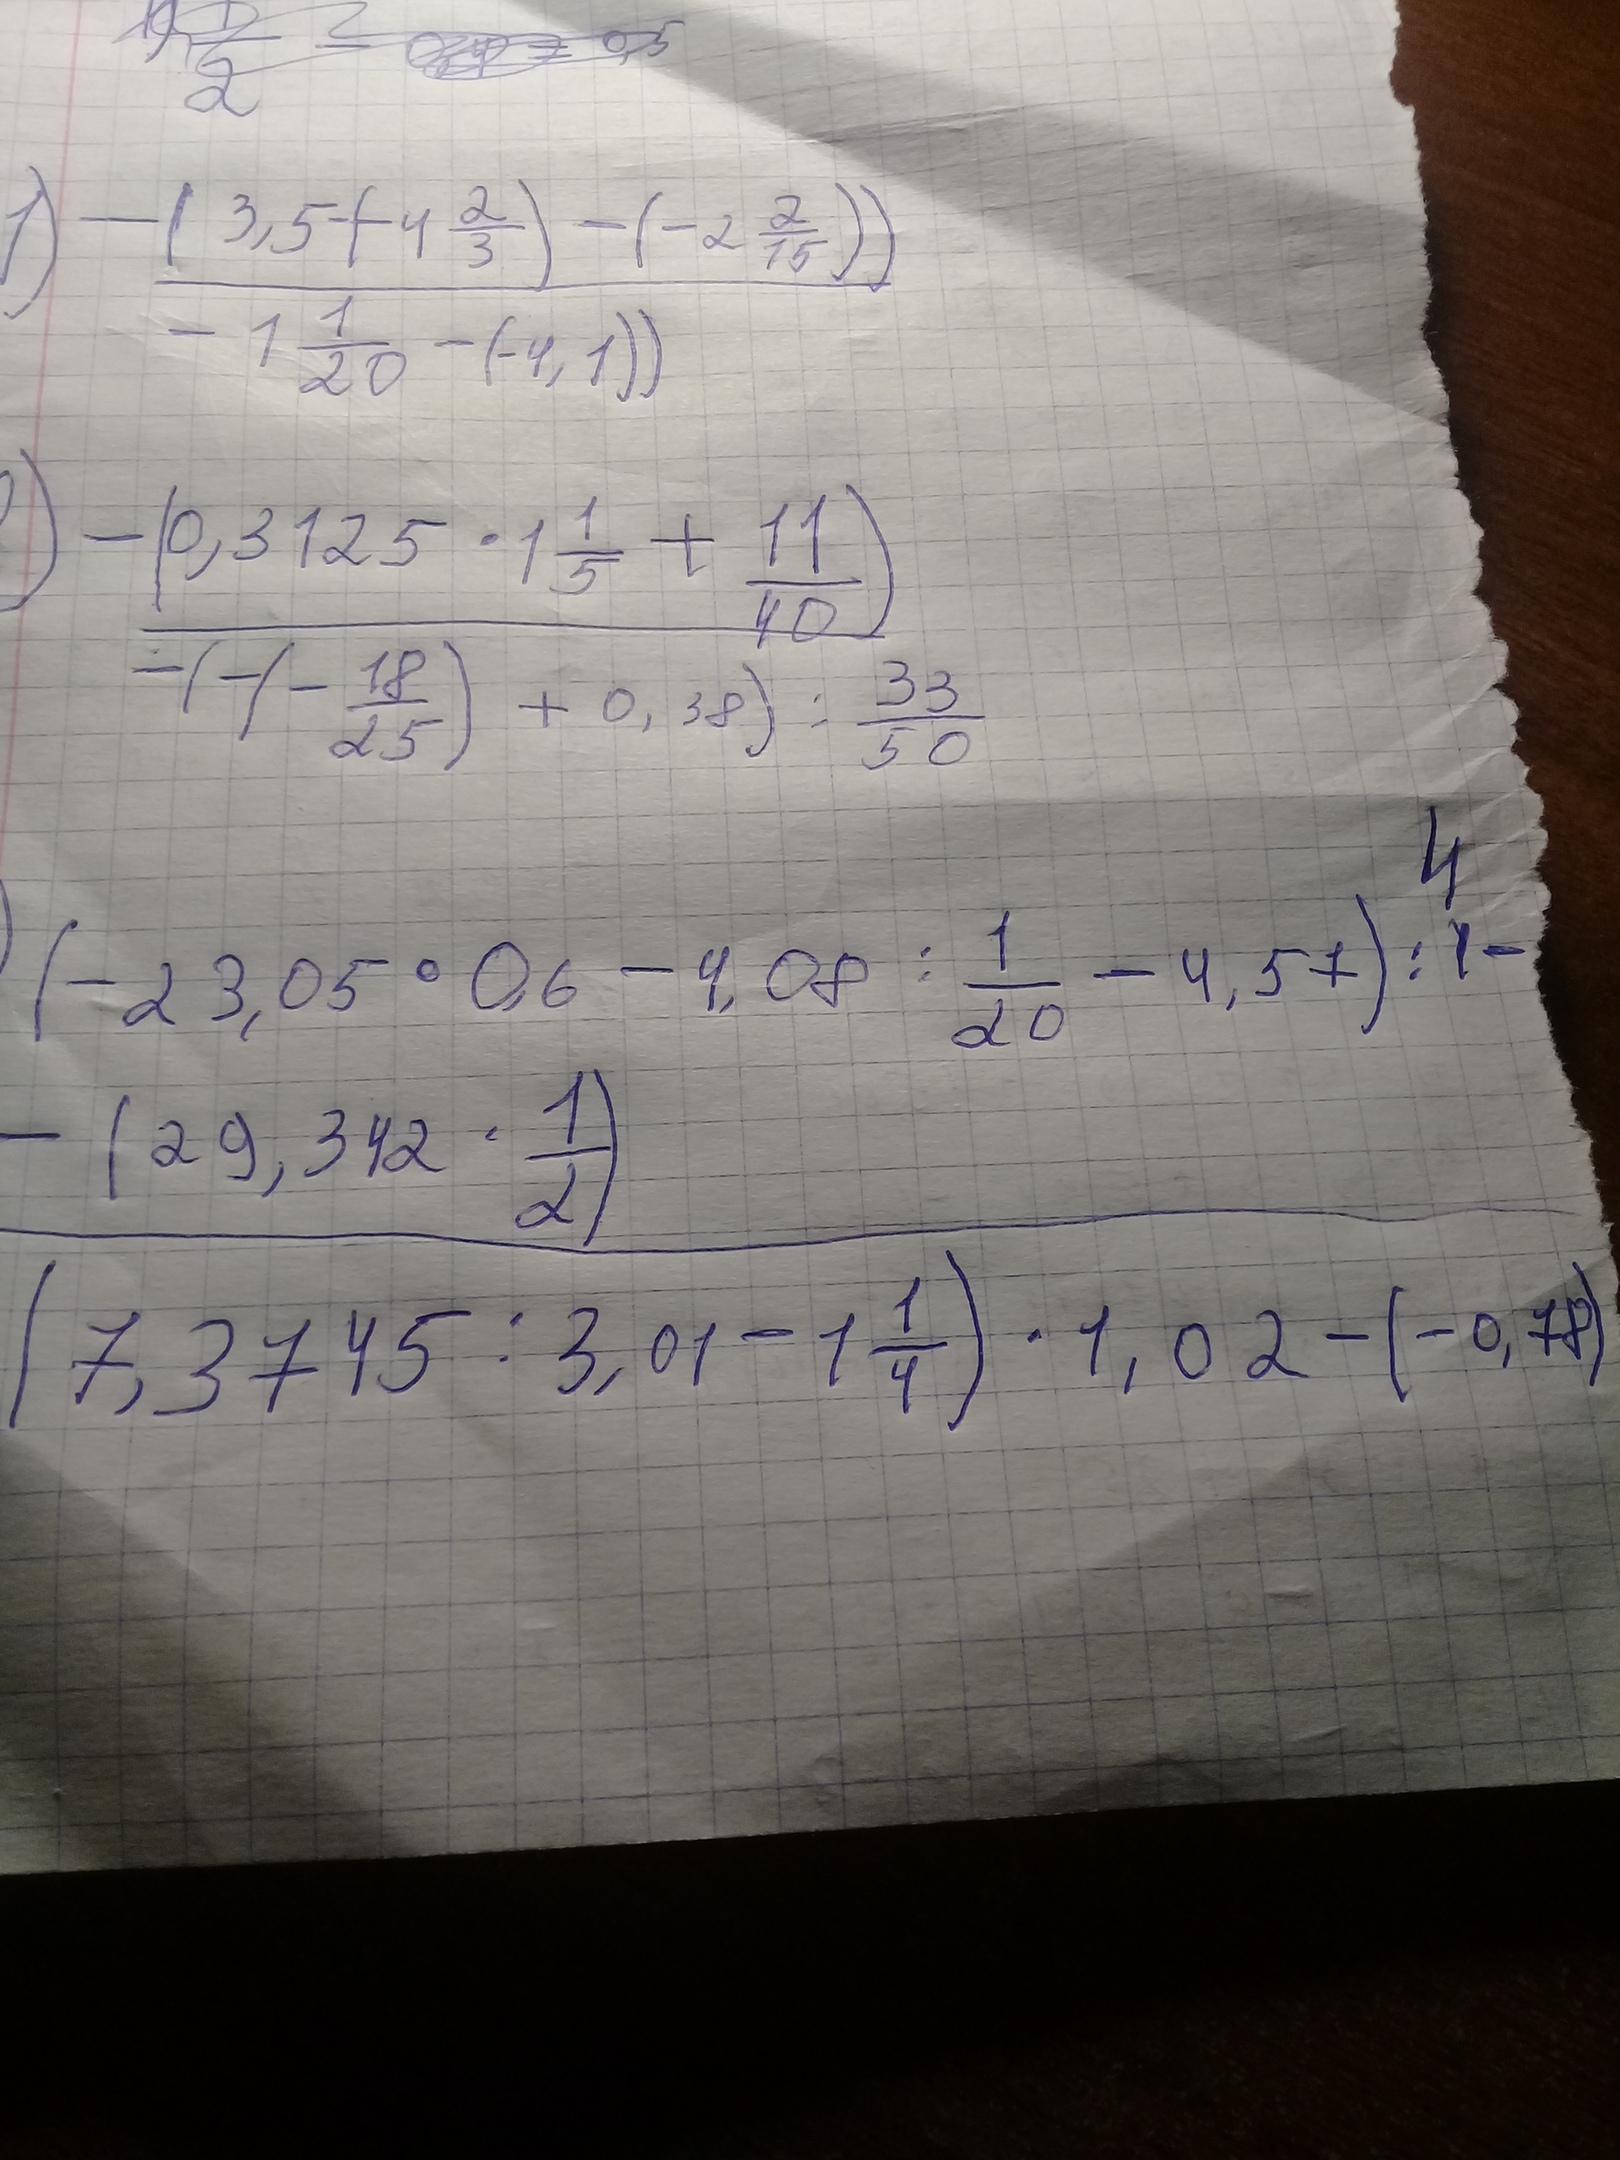 1) -(3,5-(-4 2/3) -(-2 2/15))
-1 1/20 -(-4,1))
) -(0,3125 · 1 1/5 + 11/40)
-(-(-18/25) + 0,38) : 33/50
4
) (-23,05 · 0,6 - 4,08 : 1/20 - 4,57) : 4-
- (29,342 · 1/2)
(7,3745 : 3,01 - 1 1/4) · 1,02 - (-0,78)